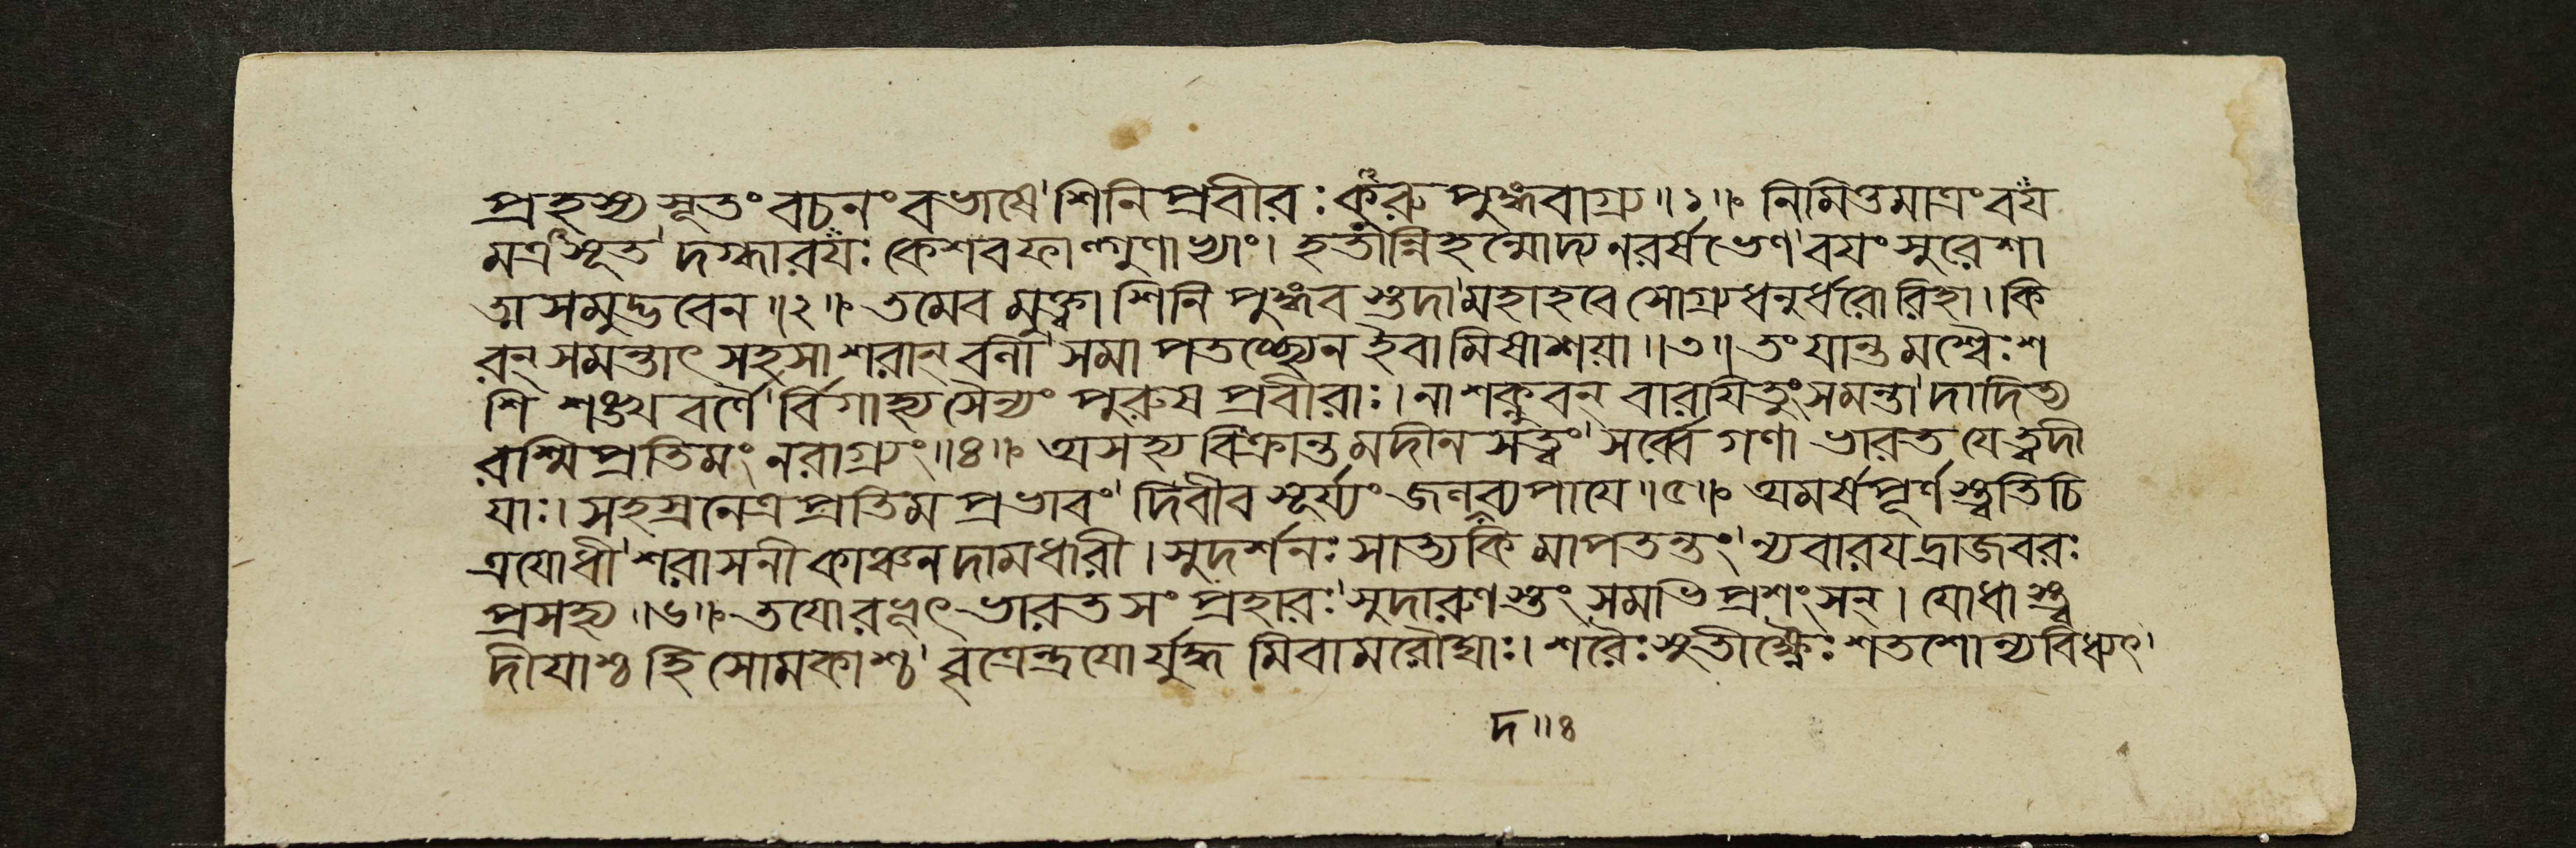 প্রহস্য সূতং বচনং বভাষে শিনিপ্রবীরঃ কুরুপুঙ্গবাগ্র্য॥১॥ নিমিত্তমাত্রং বয়
মত্র সূত দগ্ধারয়ঃ কেশবফাল্গুণাভ্যাং। হতান্নিহন্মোদ্য নরর্ষভেণ বয়ং সুরেশা
ত্ম সমুদ্ভবেন॥২॥ তমেবমুক্ত্বা শিনিপুঙ্গবস্তদা মহাহবে সোগ্র্যধনুর্ধরোরিহা। কি
রন্ সমন্তাৎ সহসা শরান্ বলী সমাপতচ্ছ্যেন ইবামিষাশয়া॥৩॥ তং যান্তমশ্বৈঃ শ
শিশঙ্খবর্ণৈর্বিগাহ্য সৈন্যং পুরুষপ্রবীরাঃ। নাশক্নুবন্ বারয়িতুং সমন্তাদাদিত্য
রশ্মিপ্রতিমং নরাগ্র্যং॥৪॥ অসহ্যবিক্রান্তমদীনসত্ত্বং সর্ব্বে গণা ভারত যে ত্বদী
যাঃ। সহস্রনেত্রপ্রতিমপ্রভাবং দিবীব সূর্য্যং জলদব্যপায়ে॥৫॥ অমর্ষপূর্ণস্ত্বতিচি
ত্রযোধী শরাসনী কাঞ্চনদামধারী। সুদর্শনঃ সাত্যকিমাপতন্তং ন্যবারয়দ্রাজবরঃ
প্রসহ্য॥৬॥ তয়োরভূৎ ভারত সংপ্রহারঃ সুদারুণস্তং সমভিপ্রশংসন্। যোধাস্ত্ব
দীয়াশ্চ হি সোমকাশ্চ বৃত্রেন্দ্রয়োর্যুদ্ধমিবামরৌঘাঃ। শরৈঃ সুতীক্ষ্ণৈঃ শতশোন্যবিধ্যৎ
দ॥৪